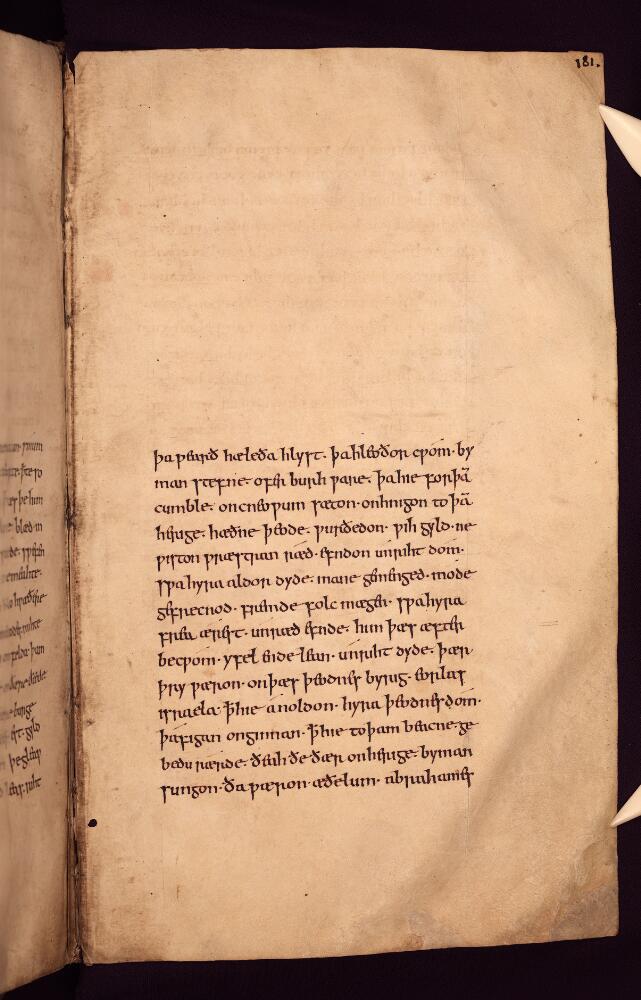 181.
þa ƿearð hæleða hlyst· þa hleoðor cƿom· by
man stefne· ofer burh ƿare· þa hie forþā
cumble· on cneoƿum sæton· onhnigon to þā
herige· hæðne þeode· ƿurðedon· ƿih gyld· ne
ƿiston ƿræstran ræd· efndon unriht dom·
sƿa hyra aldor dyde· mane gemenged· mode
gefrecnod· fremde folc mægen· sƿa hyra
frea ærest· unræd efnde· him þæs æfter
becƿom· yfel ende lean· unriht dyde· þær·
þry ƿæron· on þæs þeodnes byrig· eorlas
israela· ꝥ hie a noldon· hyra þeodnes dom·
þafigan onginnan· ꝥ hie to þam beacne· ge
bedu rærde· ðeah ðe ðær on herige· byman
sungon· ða ƿæron· æðelum· abrahames